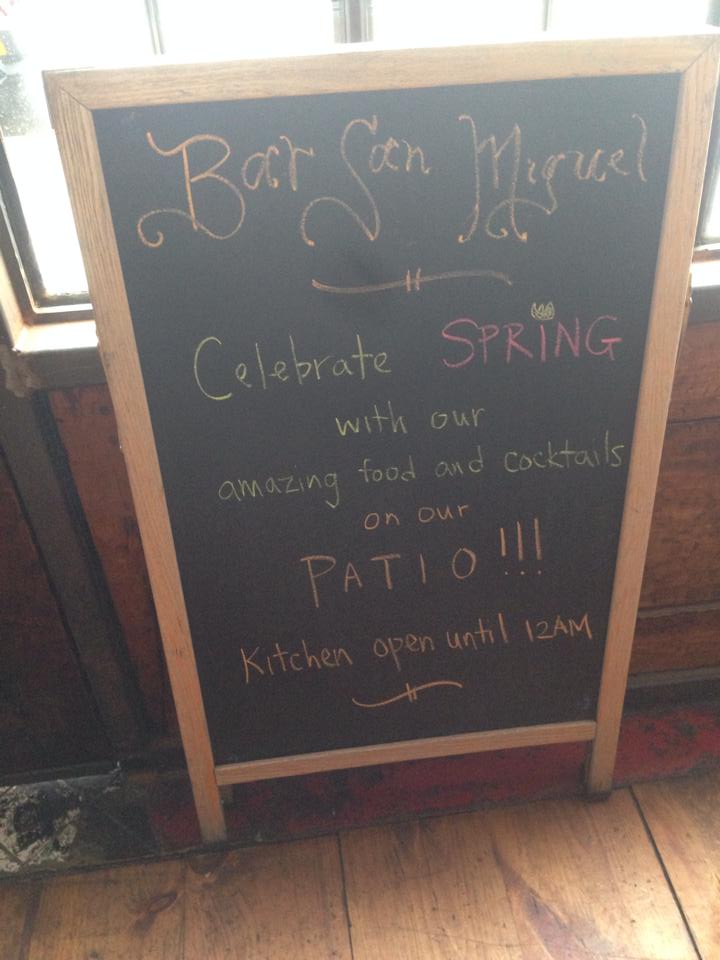 Bar San Miguel
Celebrate SPRING
with our
amazing food and cocktails
on our
PATIO!!!
Kitchen open until 12AM